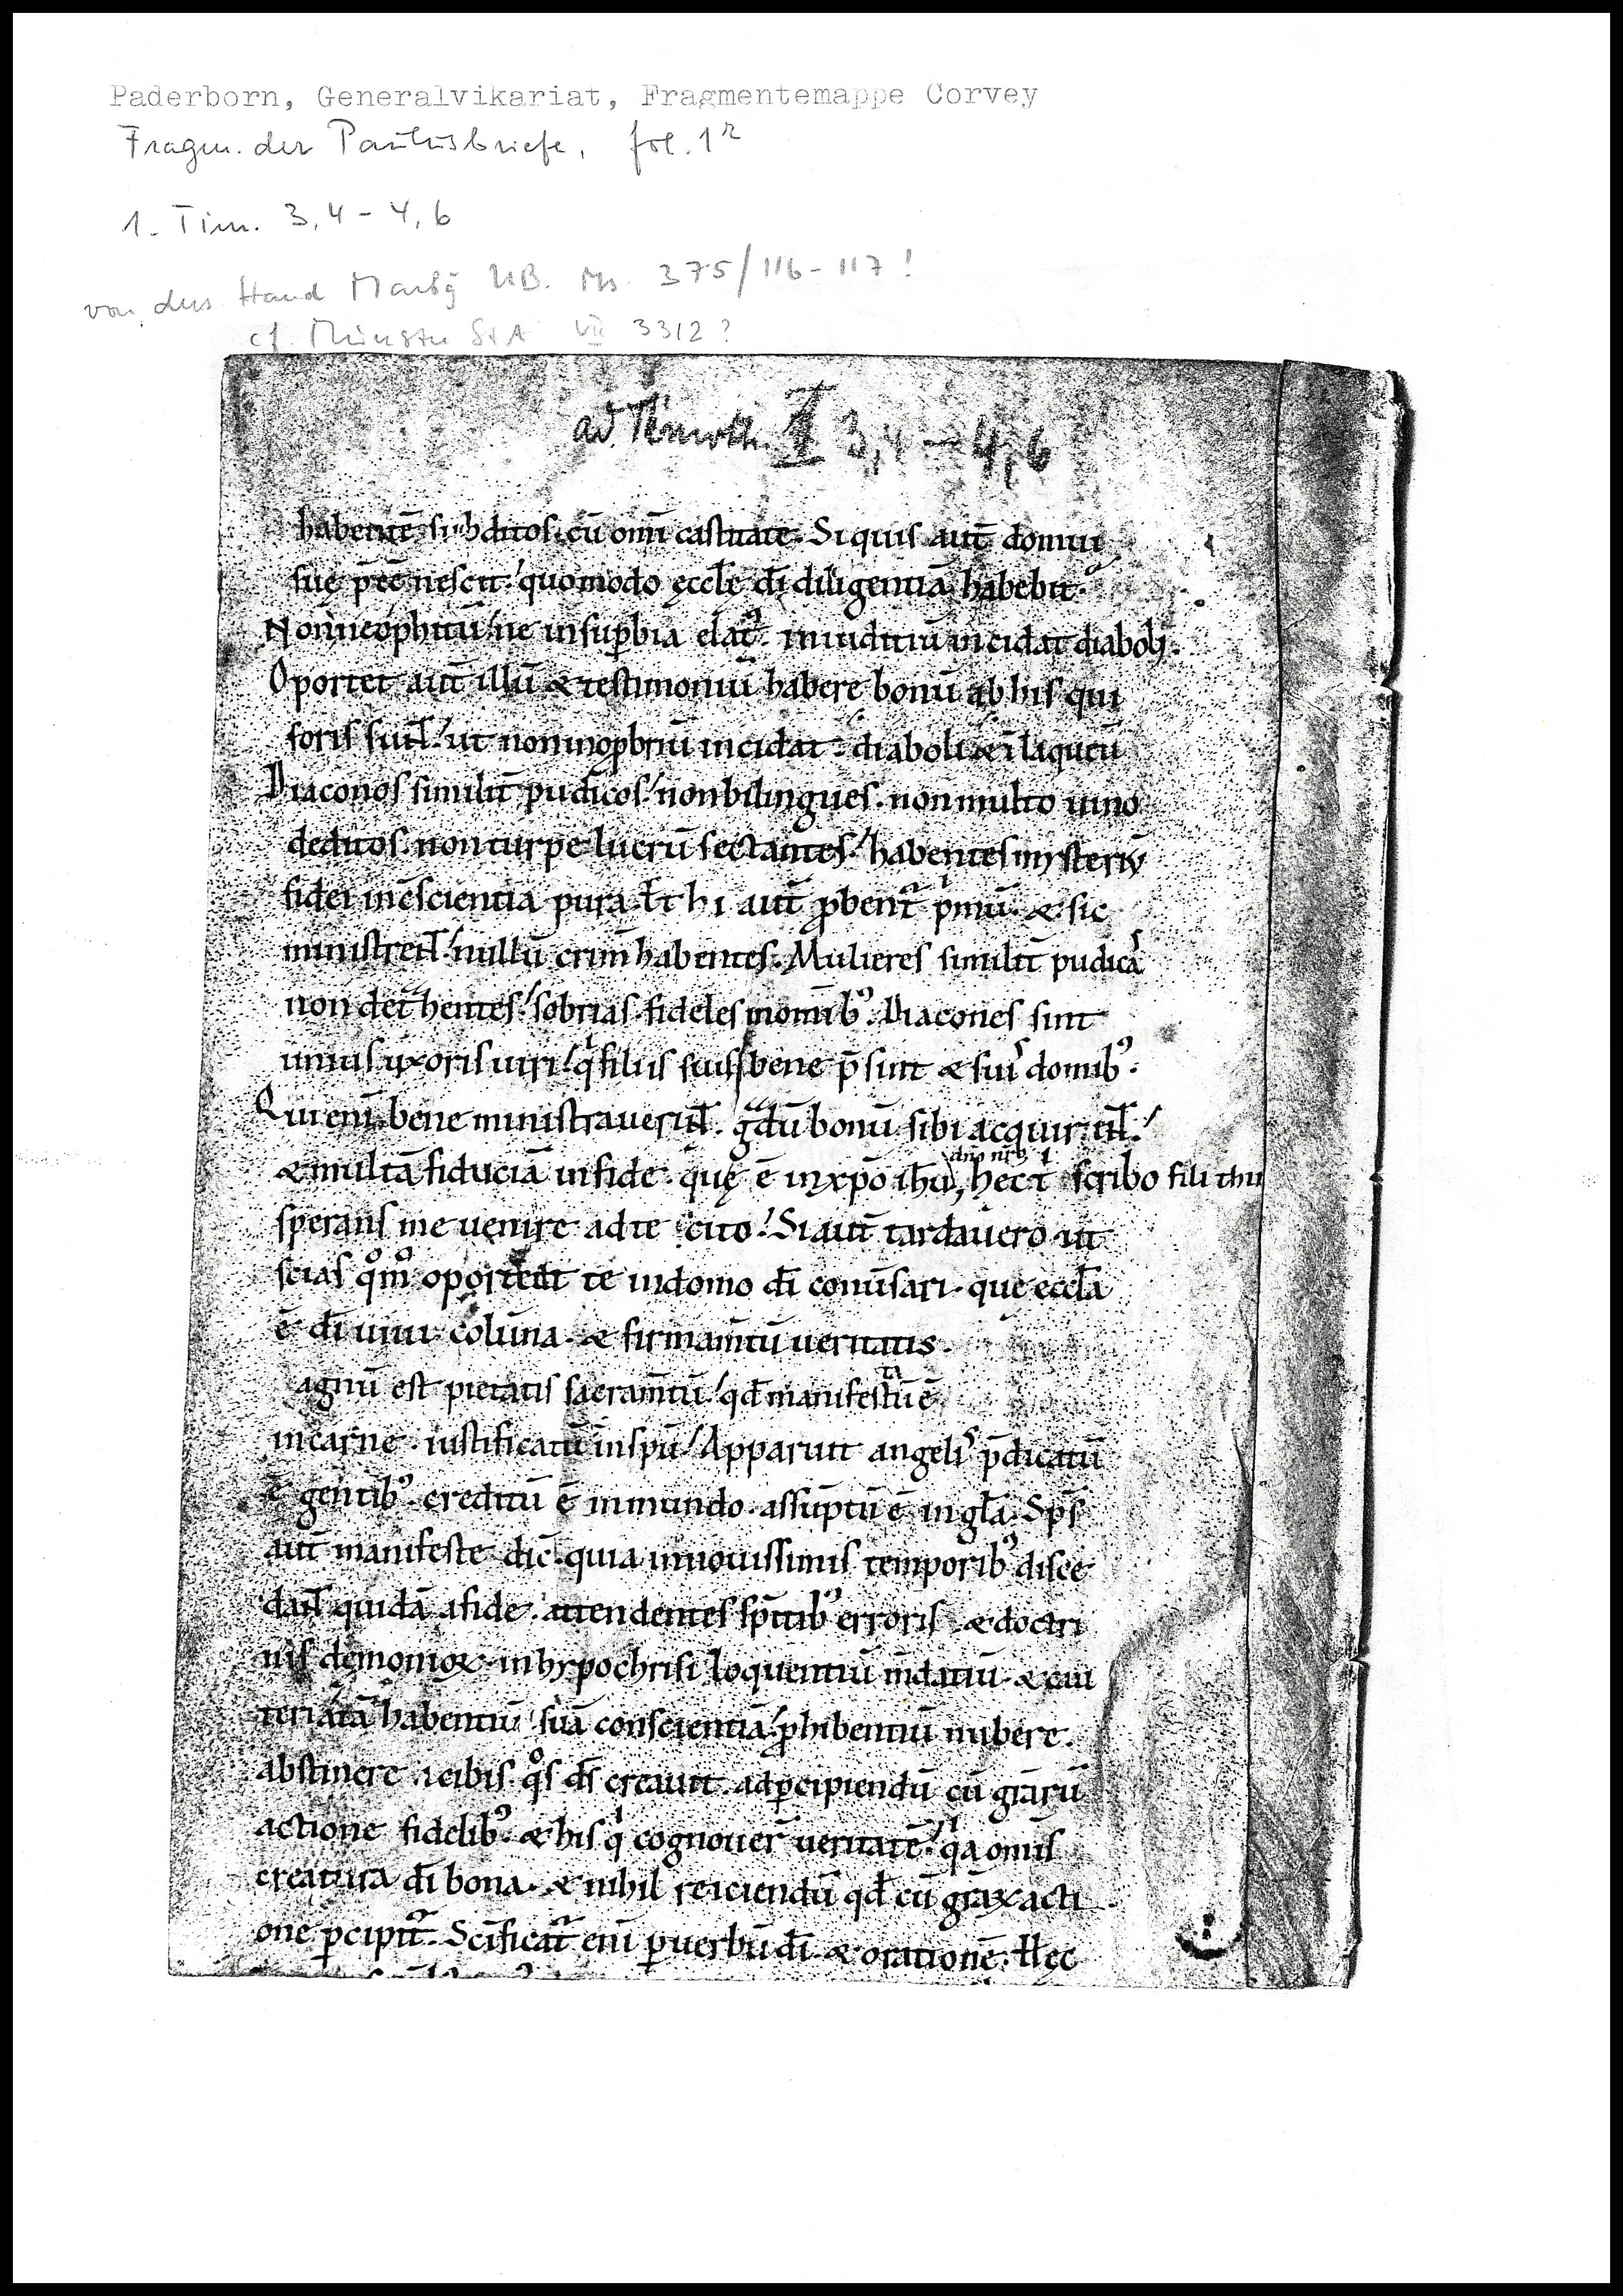 Paderborn, Generalvikariat, Fragmentemappe Corvey
Fragm. der Paulusbriefe, fol. 1r
1. Tim. 3,4 - 4,6
von ders Hand Marbg UB. Ms. 375/116-117!
cf. Münster StA VII 3312?
ad Timoth. I 3,4 - 4,6
habentē subditos. cū om̄i castitate. Si quis aut̄ domui
suę p̄eē nescit: quomodo ęccłe dī diligentiā habebit.
Non neophitū: ne insuꝑbia elatꝰ. iniuditiū incidat diaboli.
Oportet aut̄ illū & testimoniū habere bonū ab his qui
foris suut̄: ut non inoꝓbriū incidat diaboli & ī laqueū
Diaconos similit̄ pudicos: non bilingues. non multo uino
deditos. non turpe lucrū sectantes: habentes mysteriū
fidei in ꝯscientia pura. & hi aut̄ ꝓbent̄ p̄mū. & sic
ministrent̄: nullū crim̄ habentes. Mulieres similit̄ pudicas
non det̄hentes: sobrias. fideles in om̄ib⁹. Diacones sint
unius uxoris uiri: qⁱ filiis suis bene p̄sint & suis domib⁹.
Qui enī bene ministrauerint̄. gͣdū bonū sibi acquir͛nt̄:
dn̄o nr̄o
& multā fiduciā in fide. quę ē in xp̄o ih̄u, hec t̄ scribo fili thi
sperans me uenire ad te cito: Si aut̄ tardauero ut
scias qͦmͦ oporteat te in domo dī conūsari. que eccła
ē dī uiui. colūna. & firmam̄tū ueritatis.
agnū est pietatis sacram̄tū: qđ manifestatū ē
in carne. iustificatū in sp̄u: Apparuit angelis p̄dicatū
ē gentib⁹. creditū ē in mundo. assūptū ē in gła. Sp̄s
aut̄ manifeste dic̄. quia in nouissimis temporib⁹ disce
dent̄ quidā a fide. attendentes sp̄itib⁹ erroris & doctri
nis demonioꝝ. in hypochrisi loquentiū m̄datiū. & cau
teriatā habentiū suā conscientiā: ꝓhibentiū nubere.
abstinere a cibis. qͦs ds̄ creauit. ad ꝑcipiendū cū grārū
actione fidelib⁹. & his qⁱ cognouer̄ ueritatē: qⁱa omīs
creatura dī bona. & nihil reiciendū qđ cū graꝝ acti
one ꝑcipit̄. Sc̄ificat̄ enī ꝑ uerbū dī. & orationē. Hęc